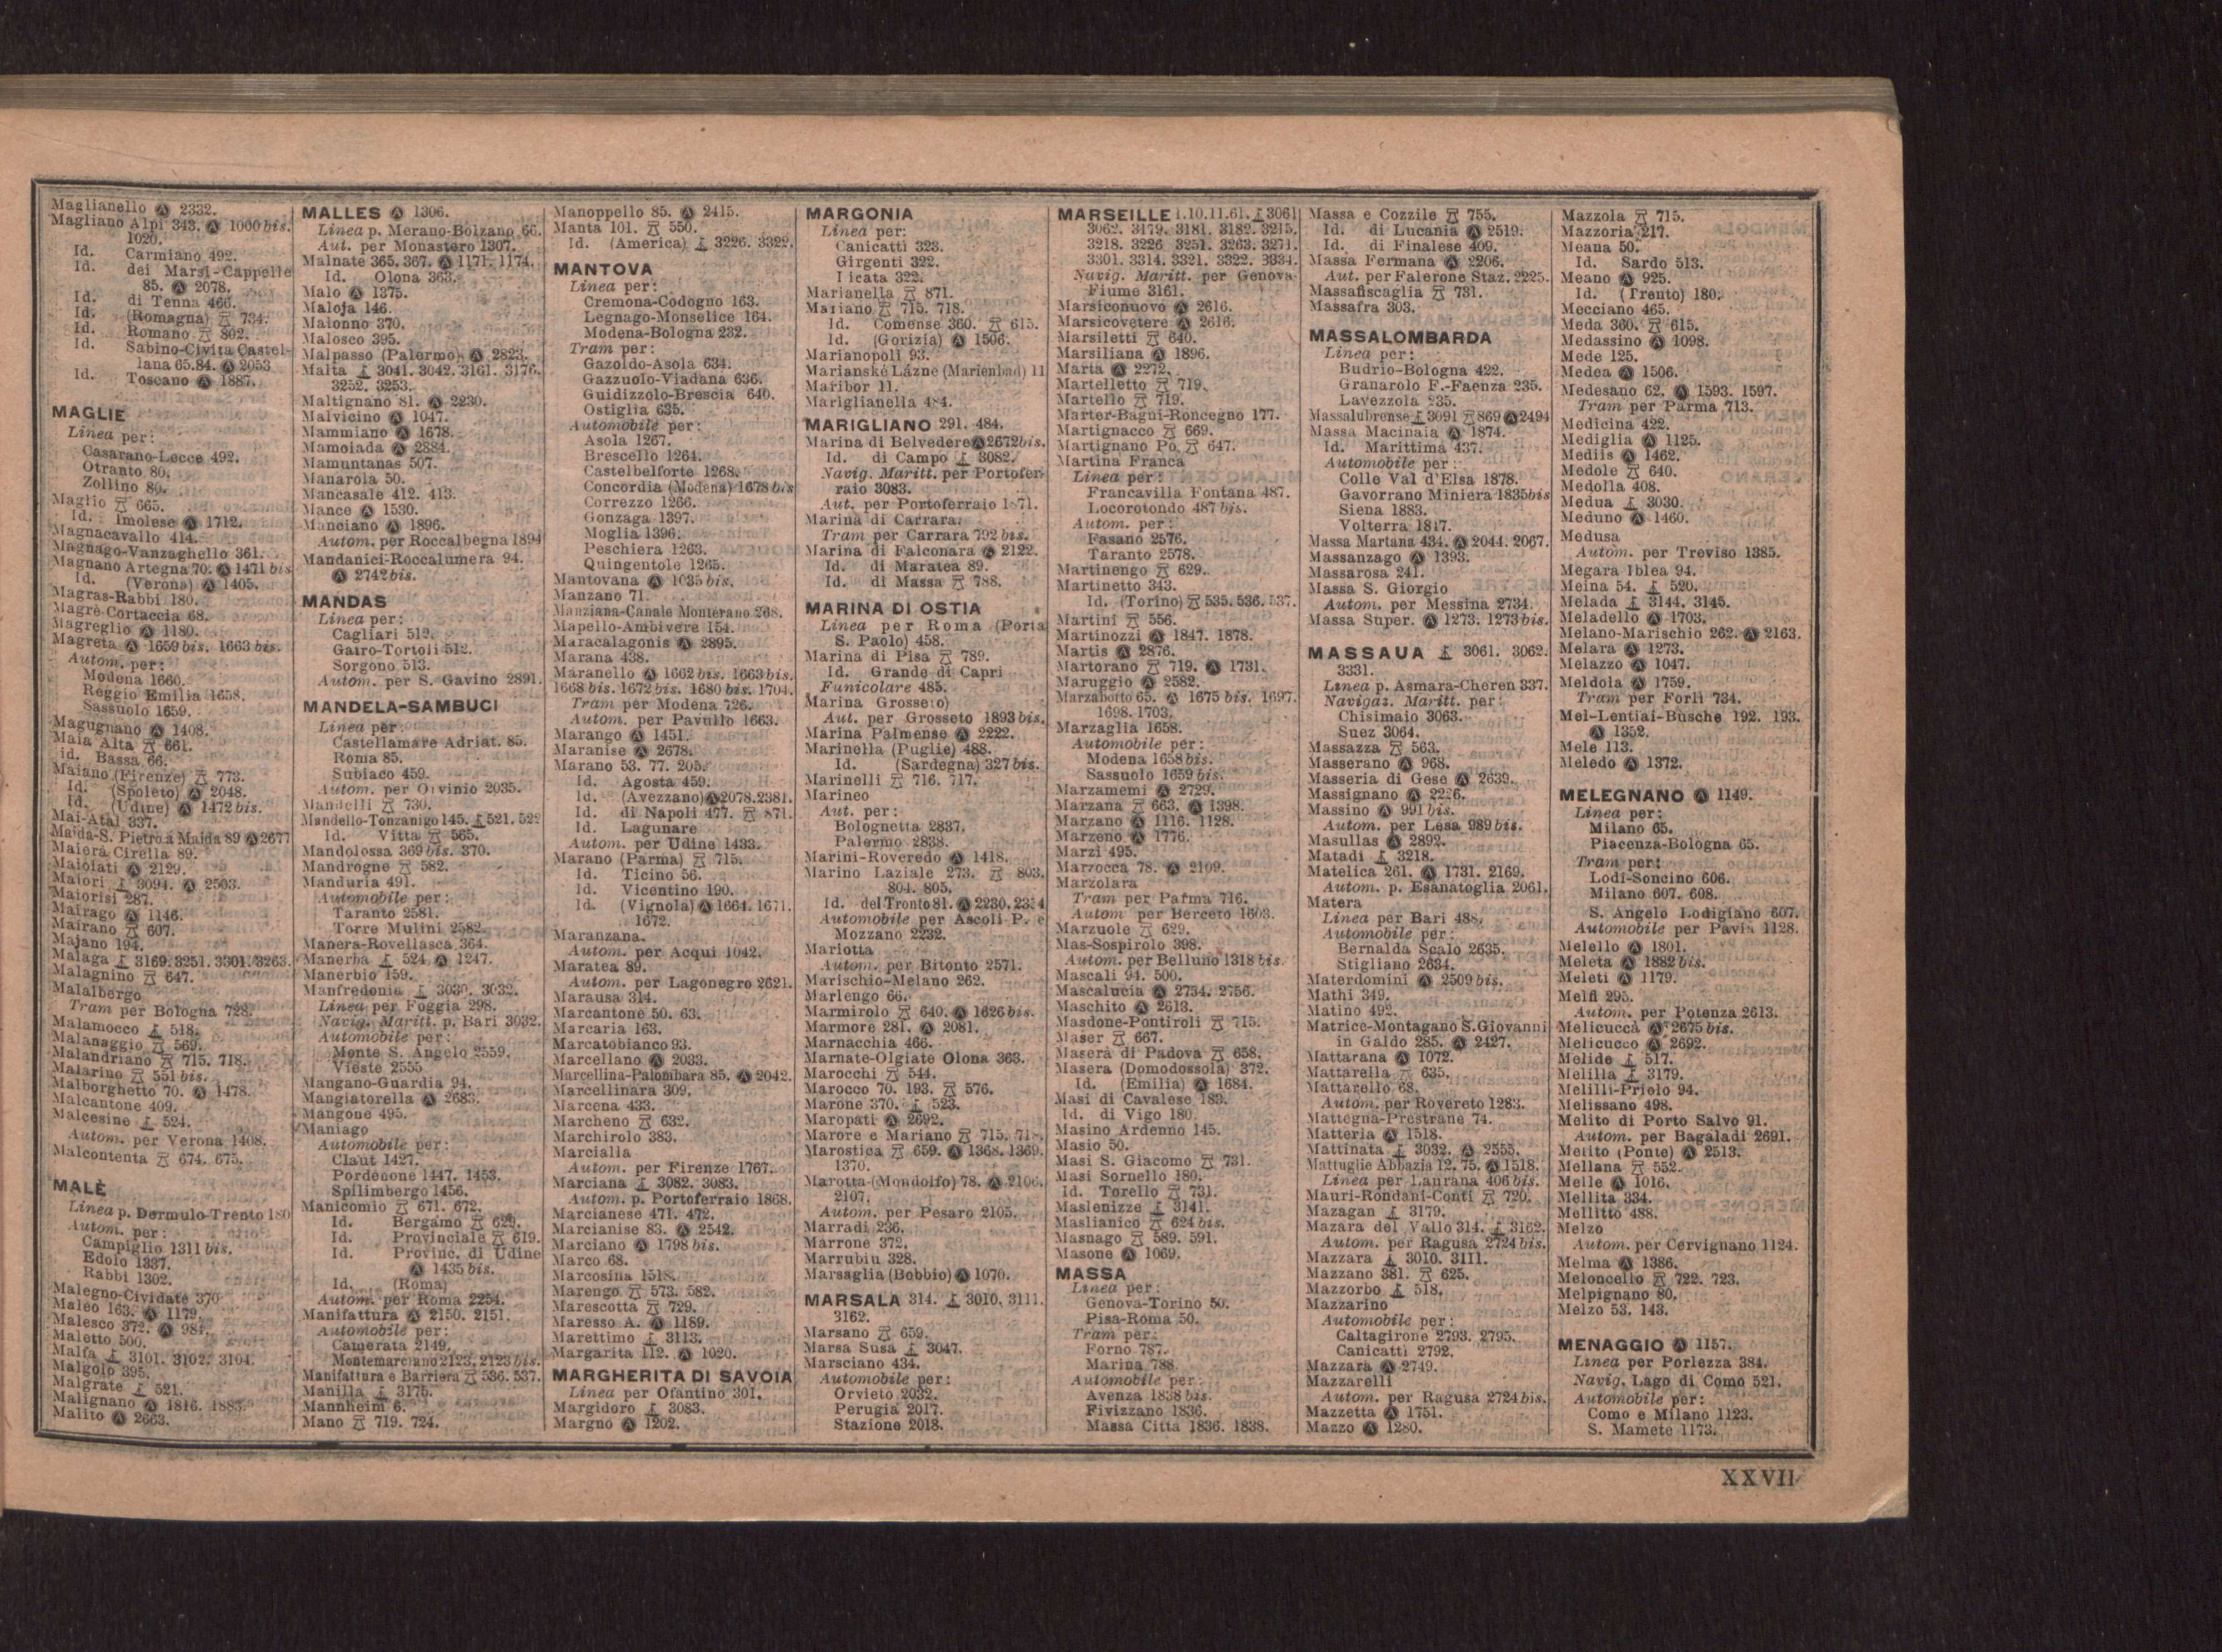 Maglianello Ⓐ 2332.
Magliano Alpi 343. Ⓐ 1000 bis.
1020.
Id. Carmiano 492.
Id. dei Marsi-Cappelle
85. Ⓐ 2078.
Id. di Tenna 466.
Id. (Romagna) 734.
Id. Romano 802.
Id. Sabino-Civita Castel-
lana 65.84. Ⓐ 2053
Id. Toscano Ⓐ 1887.
MAGLIE
Linea per:
Casarano-Lecce 492.
Otranto 80.
Zollino 80.
Maglio 665.
Id. Imolese Ⓐ 1712.
Magnacavallo 414.
Magnago-Vanzaghello 361.
Magnano Artegna 70. Ⓐ 1471 bis
Id. (Verona) Ⓐ 1405.
Magras-Rabbi 180.
Magrè-Cortaccia 68.
Magreglio Ⓐ 1180.
Magreta Ⓐ 1659 bis. 1663 bis.
Autom. per:
Modena 1660.
Reggio Emilia 1658.
Sassuolo 1659.
Magugnano Ⓐ 1408.
Maia Alta 661.
id. Bassa 66.
Maiano (Firenze) 773.
Id. (Spoleto) Ⓐ 2048.
Id. (Udine) Ⓐ 1472 bis.
Mai-Atal 337.
Maida-S. Pietro a Maida 89 Ⓐ 2677
Maierà Cirella 89.
Maiolati Ⓐ 2129.
Maiori 3094. Ⓐ 2503.
Maiorisi 287.
Mairago Ⓐ 1146.
Mairano 607.
Majano 194.
Malaga 3169. 3251. 3301. 3263.
Malagnino 647.
Malalbergo
Tram per Bologna 728.
Malamocco 518.
Malanaggio 569.
Malandriano 715. 718.
Malarino 551 bis.
Malborghetto 70. Ⓐ 1478.
Malcantone 409.
Malcesine 524.
Autom. per Verona 1408.
Malcontenta 674. 675.
MALÈ
Linea p. Dermulo-Trento 180
Autom. per:
Campiglio 1311 bis.
Edolo 1337.
Rabbi 1302.
Malegno-Cividate 370
Maleo 163. Ⓐ 1179.
Malesco 372. Ⓐ 984.
Maletto 500.
Malfa 3101. 3102. 3104.
Malgolo 395.
Malgrate 521.
Malignano Ⓐ 1816. 1883.
Malito Ⓐ 2663.
MALLES Ⓐ 1306.
Linea p. Merano-Bolzano 66.
Aut. per Monastero 1307.
Malnate 365. 367. Ⓐ 1171. 1174.
Id. Olona 363.
Malo Ⓐ 1375.
Maloja 146.
Malonno 370.
Malosco 395.
Malpasso (Palermo) Ⓐ 2823.
Malta 3041. 3042. 3161. 3176.
3252. 3253.
Maltignano 81. Ⓐ 2230.
Malvicino Ⓐ 1047.
Mammiano Ⓐ 1678.
Mamoiada Ⓐ 2884.
Mamuntanas 507.
Manarola 50.
Mancasale 412. 413.
Mance Ⓐ 1530.
Manciano Ⓐ 1896.
Autom. per Roccalbegna 1894
Mandanici-Roccalumera 94.
Ⓐ 2742 bis.
MANDAS
Linea per:
Cagliari 512.
Gairo-Tortolì 512.
Sorgono 513.
Autom. per S. Gavino 2891.
MANDELA-SAMBUCI
Linea per:
Castellamare Adriat. 85.
Roma 85.
Subiaco 459.
Autom. per Orvinio 2035.
Mandelli 730.
Mandello-Tonzanigo 145. 521. 522
Id. Vitta 565.
Mandolossa 369 bis. 370.
Mandrogne 582.
Manduria 491.
Automobile per:
Taranto 2581.
Torre Mulini 2582.
Manera-Rovellasca 364.
Manerba 524. Ⓐ 1247.
Manerbio 159.
Manfredonia 3030. 3032.
Linea per Foggia 298.
Navig. Maritt. p. Bari 3032.
Automobile per:
Monte S. Angelo 2559.
Vieste 2555
Mangano-Guardia 94.
Mangiatorella Ⓐ 2683.
Mangone 495.
Maniago
Automobile per:
Claut 1427.
Pordenone 1447. 1453.
Spilimbergo 1456.
Manicomio 671. 672.
Id. Bergamo 629.
Id. Provinciale 619.
Id. Provinc. di Udine
Ⓐ 1435 bis.
Id. (Roma)
Autom. per Roma 2254.
Manifattura Ⓐ 2150. 2151.
Automobile per:
Camerata 2149.
Montemarciano 2123. 2123 bis.
Manifattura e Barriera 536. 537.
Manilla 3175.
Mannheim 6.
Mano 719. 724.
Manoppello 85. Ⓐ 2415.
Manta 101. 550.
Id. (America) 3226. 3322.
MANTOVA
Linea per:
Cremona-Codogno 163.
Legnago-Monselice 164.
Modena-Bologna 232.
Tram per:
Gazoldo-Asola 634.
Gazzuolo-Viadana 636.
Guidizzolo-Brescia 640.
Ostiglia 635.
Automobile per:
Asola 1267.
Brescello 1264.
Castelbelforte 1268.
Concordia (Modena) 1678 bis
Correzzo 1266.
Gonzaga 1397.
Moglia 1396.
Peschiera 1263.
Quingentole 1265.
Mantovana Ⓐ 1035 bis.
Manzano 71.
Manziana-Canale Monterano 268.
Mapello-Ambivere 154.
Maracalagonis Ⓐ 2895.
Marana 438.
Maranello Ⓐ 1662 bis. 1663 bis.
1668 bis. 1672 bis. 1680 bis. 1704.
Tram per Modena 726.
Autom. per Pavullo 1663.
Marango Ⓐ 1451.
Maranise Ⓐ 2678.
Marano 53. 77. 205.
Id. Agosta 459.
Id. (Avezzano) Ⓐ 2078. 2381.
Id. di Napoli 477. 871.
Id. Lagunare
Autom. per Udine 1433.
Marano (Parma) 715.
Id. Ticino 56.
Id. Vicentino 190.
Id. (Vignola) Ⓐ 1664. 1671.
1672.
Maranzana.
Autom. per Acqui 1042.
Maratea 89.
Autom. per Lagonegro 2621.
Marausa 314.
Marcantone 50. 63.
Marcaria 163.
Marcatobianco 93.
Marcellano Ⓐ 2033.
Marcellina-Palombara 85. Ⓐ 2042.
Marcellinara 309.
Marcena 433.
Marcheno 632.
Marchirolo 383.
Marcialla
Autom. per Firenze 1767.
Marciana 3082. 3083.
Autom. p. Portoferraio 1868.
Marcianese 471. 472.
Marcianise 83. Ⓐ 2542.
Marciano Ⓐ 1798 bis.
Marco 68.
Marcosina 1518.
Marengo 573. 582.
Marescotta 729.
Maresso A. Ⓐ 1189.
Marettimo 3113.
Margarita 112. Ⓐ 1020.
MARGHERITA DI SAVOIA
Linea per Ofantino 301.
Margidoro 3083.
Margno Ⓐ 1202.
MARGONIA
Linea per:
Canicatti 323.
Girgenti 322.
Licata 322.
Marianella 871.
Mariano 715. 718.
Id. Comense 360. 615.
Id. (Gorizia) Ⓐ 1506.
Marianopoli 93.
Marianské Lázne (Marienbad) 11
Maribor 11.
Mariglianella 484.
MARIGLIANO 291. 484.
Marina di Belvedere Ⓐ 2672 bis.
Id. di Campo 3082.
Navig. Maritt. per Portofer-
raio 3083.
Aut. per Portoferraio 1871.
Marina di Carrara.
Tram per Carrara 792 bis.
Marina di Falconara Ⓐ 2122.
Id. di Maratea 89.
Id. di Massa 788.
MARINA DI OSTIA
Linea per Roma (Porta
S. Paolo) 458.
Marina di Pisa 789.
Id. Grande di Capri
Funicolare 485.
Marina Grosseto)
Aut. per Grosseto 1893 bis.
Marina Palmense Ⓐ 2222.
Marinella (Puglie) 488.
Id. (Sardegna) 327 bis.
Marinelli 716. 717.
Marineo
Aut. per:
Bolognetta 2837.
Palermo 2838.
Marini-Roveredo Ⓐ 1418.
Marino Laziale 273. 803.
804. 805.
Id. del Tronto 81. Ⓐ 2230. 2334
Automobile per Ascoli P. e
Mozzano 2232.
Mariotta
Autom. per Bitonto 2571.
Marischio-Melano 262.
Marlengo 66.
Marmirolo 640. Ⓐ 1626 bis.
Marmore 281. Ⓐ 2081.
Marnacchia 466.
Marnate-Olgiate Olona 363.
Marocchi 544.
Marocco 70. 193. 576.
Marone 370. 523.
Maropati Ⓐ 2692.
Marore e Mariano 715. 718.
Marostica 659. Ⓐ 1368. 1369.
1370.
Marotta-(Mondolfo) 78. Ⓐ 2106.
2107.
Autom. per Pesaro 2105.
Marradi 236.
Marrone 372.
Marrubiu 328.
Marsaglia (Bobbio) Ⓐ 1070.
MARSALA 314. 3010. 3111.
3162.
Marsano 659.
Marsa Susa 3047.
Marsciano 434.
Automobile per:
Orvieto 2032.
Perugia 2017.
Stazione 2018.
MARSEILLE 1.10.11.61. 3061
3062. 3179. 3181. 3182. 3215.
3218. 3226 3251. 3263. 3271.
3301. 3314. 3321. 3322. 3334.
Navig. Maritt. per Genova-
Fiume 3161.
Marsiconuovo Ⓐ 2616.
Marsicovetere Ⓐ 2616.
Marsiletti 640.
Marsiliana Ⓐ 1896.
Marta Ⓐ 2272.
Martelletto 719.
Martello 719.
Marter-Bagni-Roncegno 177.
Martignacco 669.
Martignano Po 647.
Martina Franca
Linea per:
Francavilla Fontana 487.
Locorotondo 487 bis.
Autom. per:
Fasano 2576.
Taranto 2578.
Martinengo 629.
Martinetto 343.
Id. (Torino) 535. 536. 537.
Martini 556.
Martinozzi Ⓐ 1847. 1878.
Martis Ⓐ 2876.
Martorano 719. Ⓐ 1731.
Maruggio Ⓐ 2582.
Marzabotto 65. Ⓐ 1675 bis. 1697.
1698. 1703.
Marzaglia 1658.
Automobile per:
Modena 1658 bis.
Sassuolo 1659 bis.
Marzamemi Ⓐ 2729.
Marzana 663. Ⓐ 1398.
Marzano Ⓐ 1116. 1128.
Marzeno Ⓐ 1776.
Marzi 495.
Marzocca 78. Ⓐ 2109.
Marzolara
Tram per Parma 716.
Autom per Berceto 1603.
Marzuole 629.
Mas-Sospirolo 398.
Autom. per Belluno 1318 bis.
Mascali 94. 500.
Mascalucia Ⓐ 2754. 2756.
Maschito Ⓐ 2613.
Masdone-Pontiroli 715.
Maser 667.
Maserà di Padova 658.
Masera (Domodossola) 372.
Id. (Emilia) Ⓐ 1684.
Masi di Cavalese 183.
Id. di Vigo 180.
Masino Ardenno 145.
Masio 50.
Masi S. Giacomo 731.
Masi Sornello 180.
Id. Torello 731.
Maslenizze 3141.
Maslianico 624 bis.
Masnago 589. 591.
Masone Ⓐ 1069.
MASSA
Linea per:
Genova-Torino 50.
Pisa-Roma 50.
Tram per:
Forno 787.
Marina 788
Automobile per:
Avenza 1838 bis.
Fivizzano 1836.
Massa Città 1836. 1838.
Massa e Cozzile 755.
Id. di Lucania Ⓐ 2519.
Id. di Finalese 409.
Massa Fermana Ⓐ 2206.
Aut. per Falerone Staz. 2225.
Massafiscaglia 731.
Massafra 303.
MASSALOMBARDA
Linea per:
Budrio-Bologna 422.
Granarolo F.-Faenza 235.
Lavezzola 235.
Massalubrense 3091 869 Ⓐ 2494
Massa Macinaia Ⓐ 1874.
Id. Marittima 437.
Automobile per:
Colle Val d'Elsa 1878.
Gavorrano Miniera 1835 bis
Siena 1883.
Volterra 1817.
Massa Martana 434. Ⓐ 2044. 2067.
Massanzago Ⓐ 1393.
Massarosa 241.
Massa S. Giorgio
Autom. per Messina 2734.
Massa Super. Ⓐ 1273. 1273 bis.
MASSAUA 3061. 3062.
3331.
Linea p. Asmara-Cheren 337.
Navigaz. Maritt. per:
Chisimaio 3063.
Suez 3064.
Massazza 563.
Masserano Ⓐ 968.
Masseria di Gese Ⓐ 2639.
Massignano Ⓐ 2226.
Massino Ⓐ 991 bis.
Autom. per Lesa 989 bis.
Masullas Ⓐ 2892.
Matadi 3218.
Matelica 261. Ⓐ 1731. 2169.
Autom. p. Esanatoglia 2061.
Matera
Linea per Bari 488.
Automobile per:
Bernalda Scalo 2635.
Stigliano 2634.
Materdomini Ⓐ 2509 bis.
Mathi 349.
Matino 492.
Matrice-Montagano S. Giovanni
in Galdo 285. Ⓐ 2427.
Mattarana Ⓐ 1072.
Mattarella 635.
Mattarello 68.
Autom. per Rovereto 1283.
Mattegna-Prestrane 74.
Matteria Ⓐ 1518.
Mattinata 3032. Ⓐ 2555.
Mattuglie Abbazia 12. 75. Ⓐ 1518.
Linea per Laurana 406 bis.
Mauri-Rondani-Conti 720.
Mazagan 3179.
Mazara del Vallo 314. 3162.
Autom. per Ragusa 2724 bis.
Mazzara 3010. 3111.
Mazzano 381. 625.
Mazzorbo 518.
Mazzarino
Automobile per:
Caltagirone 2793. 2795.
Canicatti 2792.
Mazzarà Ⓐ 2749.
Mazzarelli
Autom. per Ragusa 2724 bis.
Mazzetta Ⓐ 1751.
Mazzo Ⓐ 1280.
Mazzola 715.
Mazzoria 217.
Meana 50.
Id. Sardo 513.
Meano Ⓐ 925.
Id. (Trento) 180.
Mecciano 465.
Meda 360. 615.
Medassino Ⓐ 1098.
Mede 125.
Medea Ⓐ 1506.
Medesano 62. Ⓐ 1593. 1597.
Tram per Parma 713.
Medicina 422.
Mediglia Ⓐ 1125.
Mediis Ⓐ 1462.
Medole 640.
Medolla 408.
Medua 3030.
Meduno Ⓐ 1460.
Medusa
Autom. per Treviso 1385.
Megara Iblea 94.
Meina 54. 520.
Melada 3144. 3145.
Meladello Ⓐ 1703.
Melano-Marischio 262. Ⓐ 2163.
Melara Ⓐ 1273.
Melazzo Ⓐ 1047.
Meldola Ⓐ 1759.
Tram per Forlì 734.
Mel-Lentiai-Busche 192. 193.
Ⓐ 1352.
Mele 113.
Meledo Ⓐ 1372.
MELEGNANO Ⓐ 1149.
Linea per:
Milano 65.
Piacenza-Bologna 65.
Tram per:
Lodi-Soncino 606.
Milano 607. 608.
S. Angelo Lodigiano 607.
Automobile per Pavia 1128.
Melello Ⓐ 1801.
Meleta Ⓐ 1882 bis.
Meleti Ⓐ 1179.
Melfi 295.
Autom. per Potenza 2613.
Melicuccà Ⓐ 2675 bis.
Melicucco Ⓐ 2692.
Melide 517.
Melilla 3179.
Melilli-Priolo 94.
Melissano 498.
Melito di Porto Salvo 91.
Autom. per Bagaladi 2691.
Melito (Ponte) Ⓐ 2513.
Mellana 552.
Melle Ⓐ 1016.
Mellita 334.
Mellitto 488.
Melzo
Autom. per Cervignano 1124.
Melma Ⓐ 1386.
Meloncello 722. 723.
Melpignano 80.
Melzo 53. 143.
MENAGGIO Ⓐ 1157.
Linea per Porlezza 384.
Navig. Lago di Como 521.
Automobile per:
Como e Milano 1123.
S. Mamete 1173.
XXVII